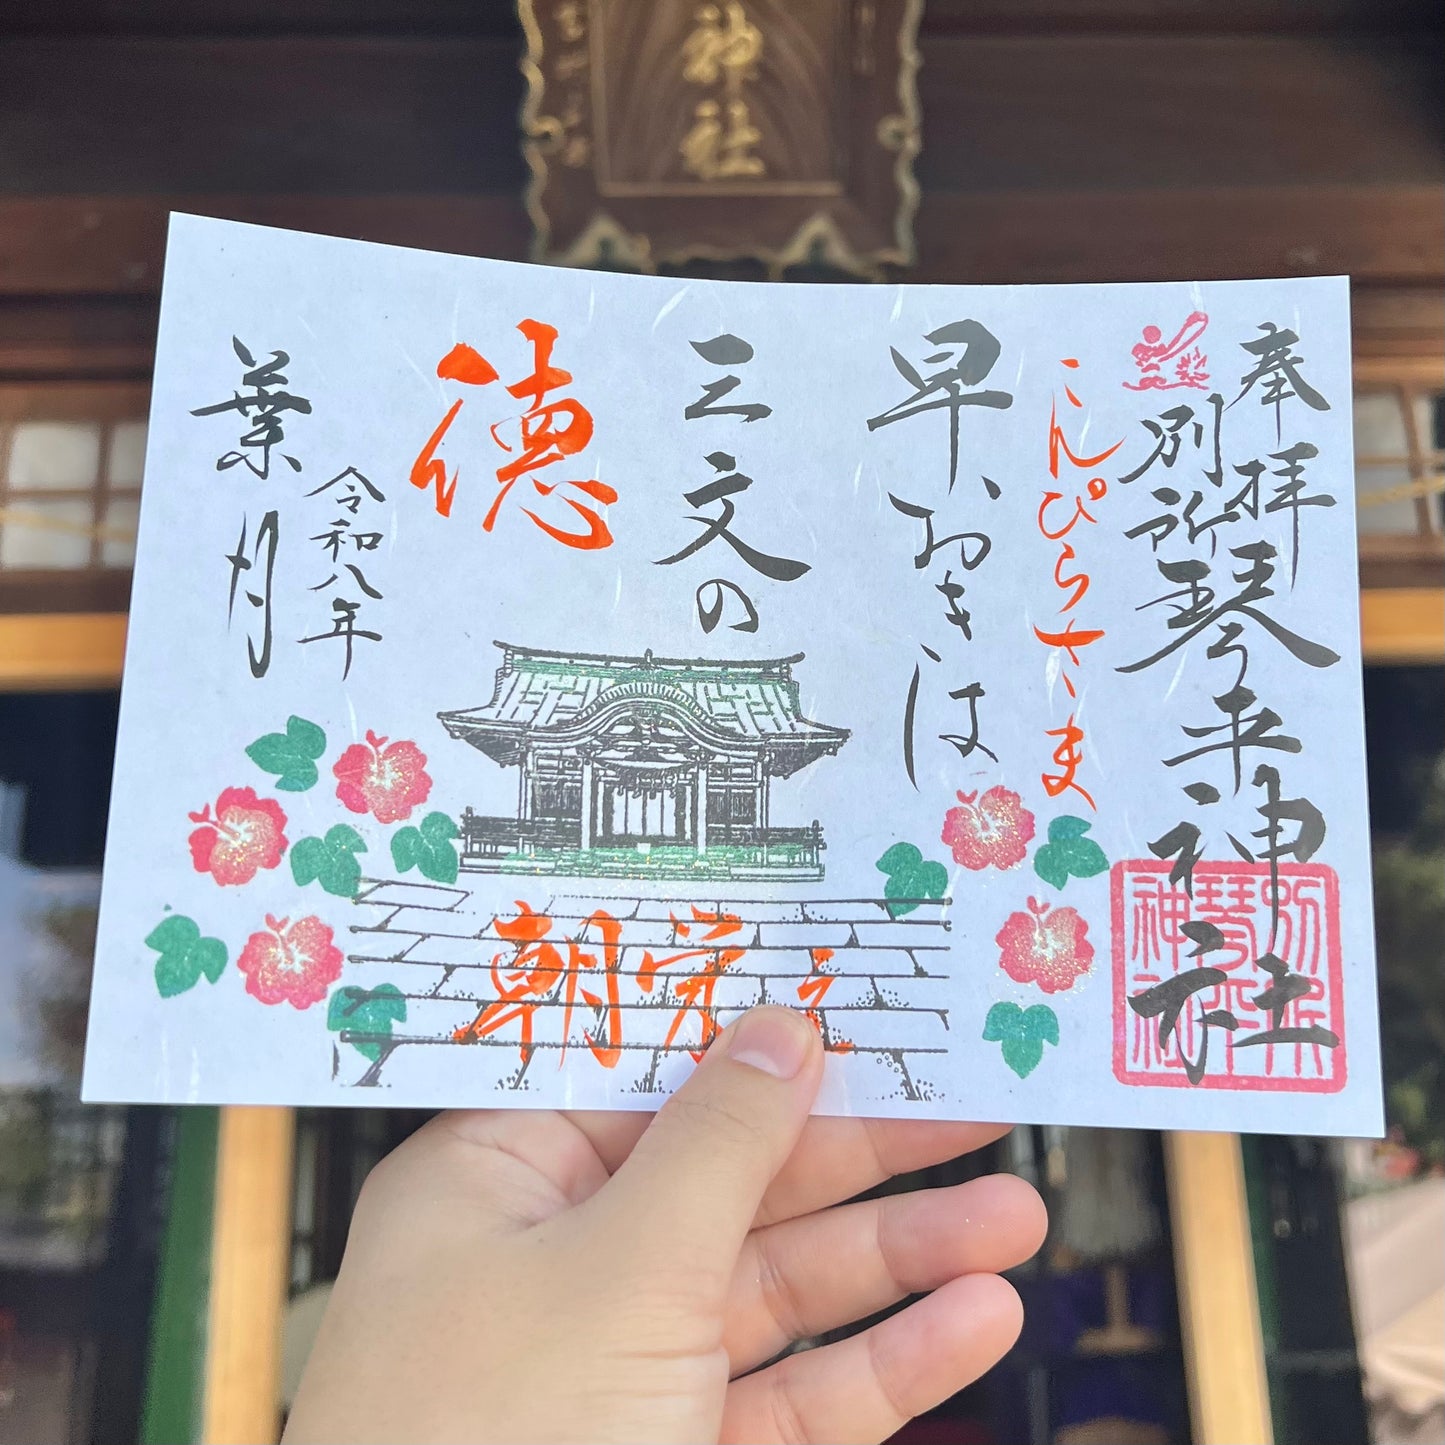 神社
奉拝
別所琴平神社
こんぴらさま
早おきは
三文の
徳
朝覚え
令和八年
葉月
別所
琴平
神社